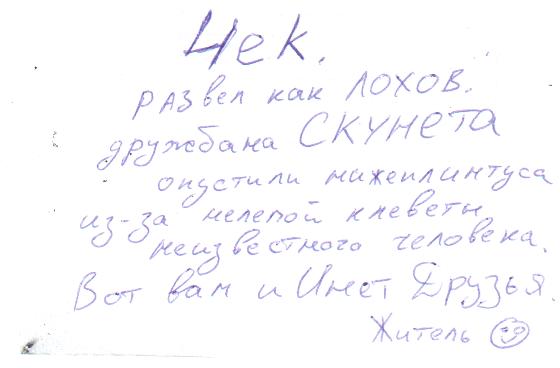 Чек.
развел как ЛОХОВ.
дружбана СКУНЕТА
опустили нижеплинтуса
из-за нелепой клеветы
неизвестного человека.
Вот вам и Инет Друзья.
Житель